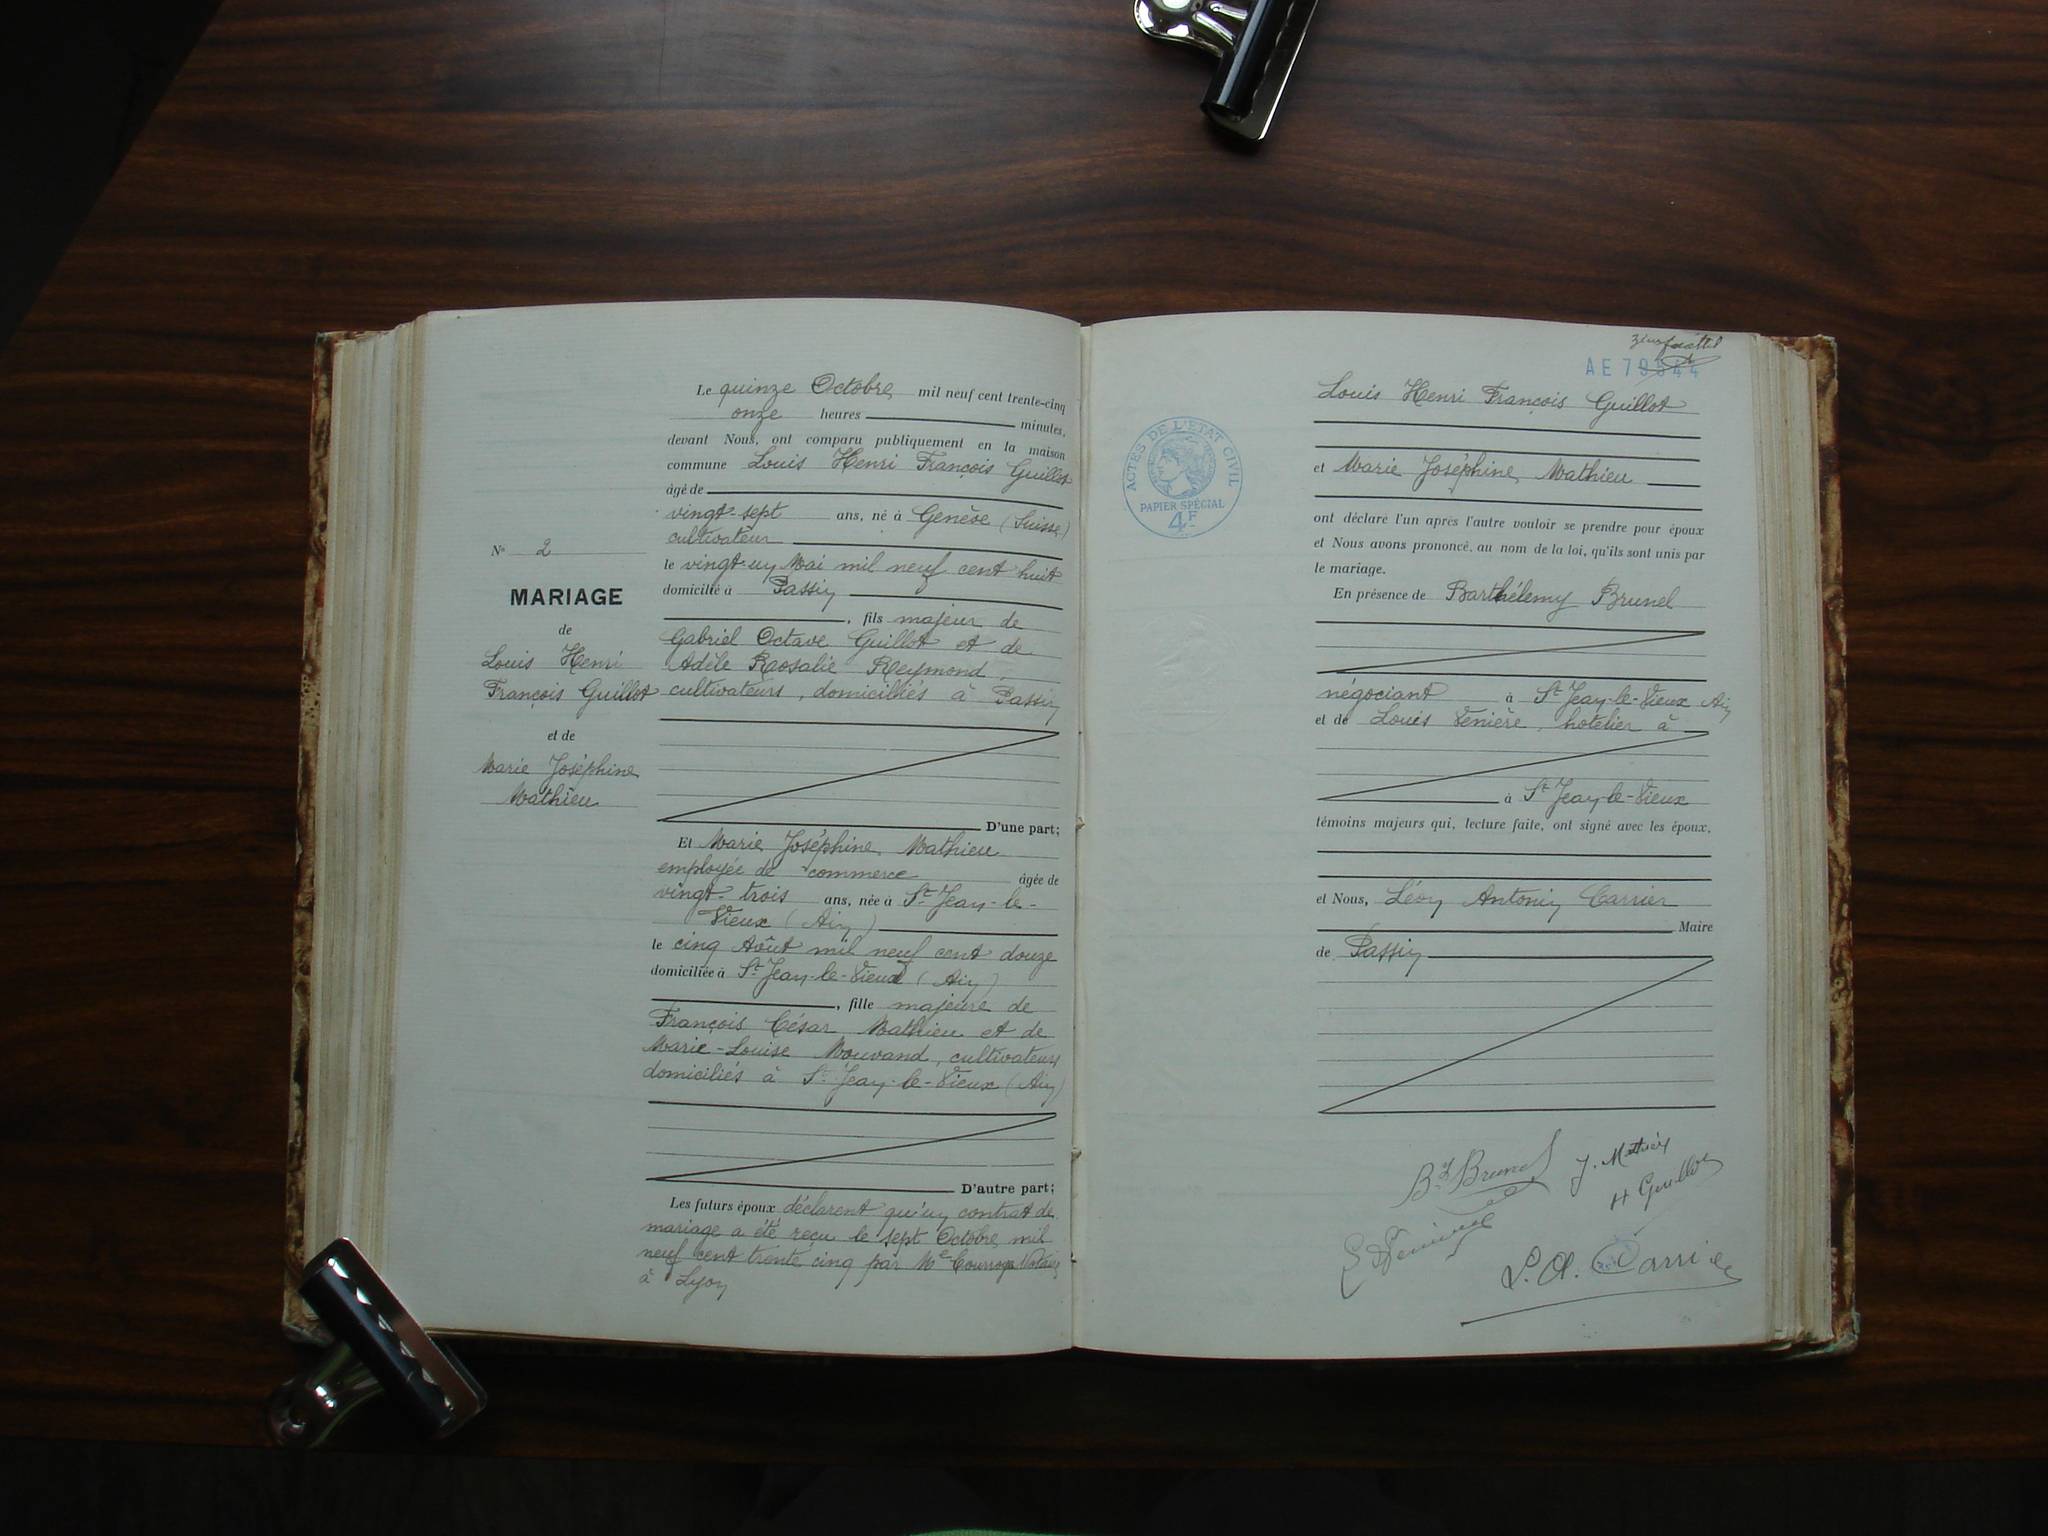 N° 2
MARIAGE
de
Louis Henri
François Guillot
et de
Marie Joséphine
Mathieu
Le quinze Octobre mil neuf cent trente-cinq
onze heures minutes,
devant Nous, ont comparu publiquement en la maison
commune Louis Henri François Guillot
âgé de
vingt-sept ans, né à Genève (Suisse)
cultivateur
le vingt-un Mai mil neuf cent huit
domicilié à Passin
, fils majeur de
Gabriel Octave Guillot et de
Adèle Rosalie Reymond,
cultivateurs, domiciliés à Passin
D'une part;
Et Marie Joséphine Mathieu
employée de commerce âgée de
vingt-trois ans, née à St Jean-le-
Vieux (Ain)
le cinq Août mil neuf cent douze
domiciliée à St Jean-le-Vieux (Ain)
, fille majeure de
François César Mathieu et de
Marie-Louise Mouvand, cultivateurs
domiciliés à St Jean-le-Vieux (Ain)
D'autre part;
Les futurs époux déclarent qu'un contrat de
mariage a été reçu le sept Octobre mil
neuf cent trente cinq par Me Notaire
à Lyon
AE 79544
ACTES DE L'ETAT CIVIL
PAPIER SPÉCIAL
4F
Louis Henri François Guillot
et Marie Joséphine Mathieu
ont déclaré l'un après l'autre vouloir se prendre pour époux
et Nous avons prononcé, au nom de la loi, qu'ils sont unis par
le mariage.
En présence de Barthélemy Brunel
négociant à St Jean-le-Vieux Ain
et de Louis Venière, hotelier à
à St Jean-le-Vieux
témoins majeurs qui, lecture faite, ont signé avec les époux,
et Nous, Léon Antonin Carrier
Maire
de Passin
Bt Brunel
J. Mathieu
H Guillot
L. A. Carrier